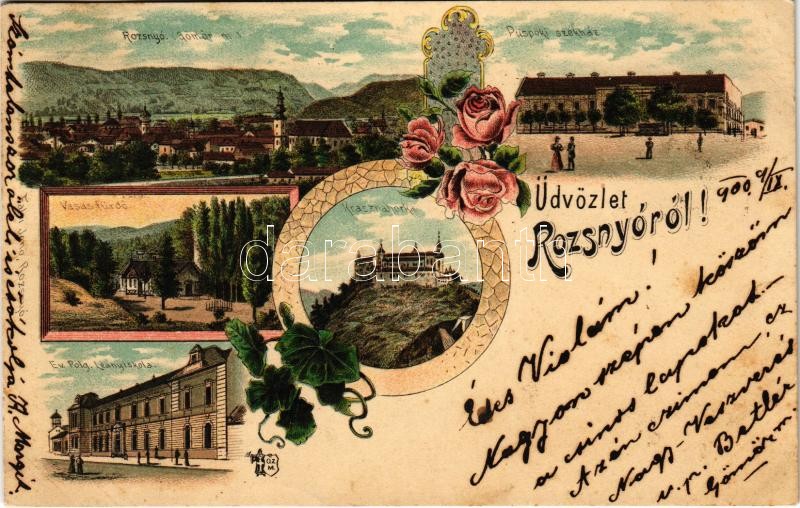 Rozsnyó. (Gömör m.)
Püspöki székház
Vasas-fürdő
Krasznahorka
Ev. Polg. Leányiskola
Üdvözlet
Rozsnyóról!
900 9/IX.
Édes Violám!
Nagyon szépen köszöm
a csinos lapokat
Az én czimem ez
Nagy-Veszverés
u. p. Betlér
Gömörm.
csókolja M. Margit.
darabanth